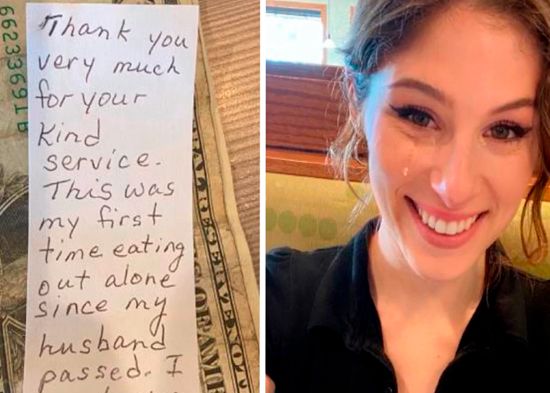 66233691B
Thank you
very much
for your
kind
service.
This was
my first
time eating
out alone
since my
husband
passed. I
RESERVE NOT
OF AM